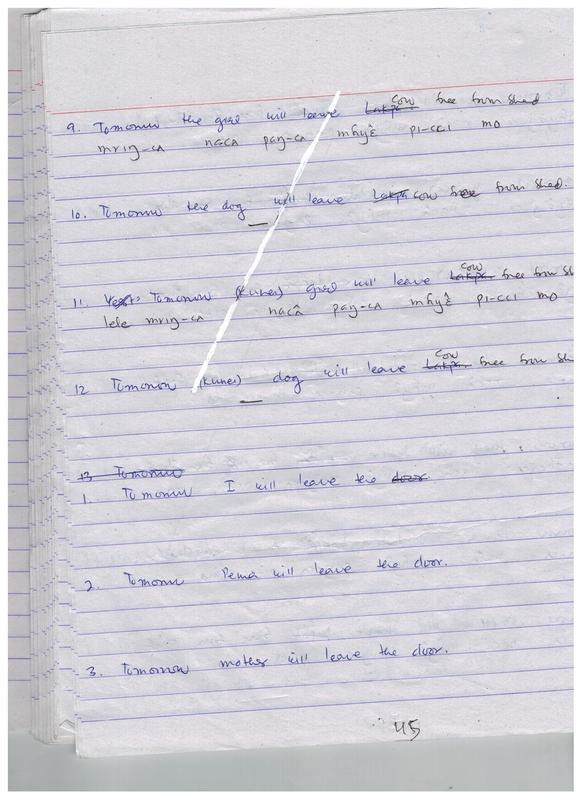 9. Tomorrow the girl will leave Cow free from shed
mring-ca naca pay-ca mhyê pi-cci mo
10. Tomorrow the dog _ will leave Cow free from Shed.
11. Tomorrow (Kunei) girl will leave Cow free from Sh
lele mring-ca nacâ pay-ca mhyê pi-cci mo
12 Tomorrow (Kunei) _ dog will leave Cow free from Sh
13 Tomorrow
1. Tomorrow I will leave the door.
2. Tomorrow Pema will leave the door.
3. Tomorrow mother will leave the door.
45